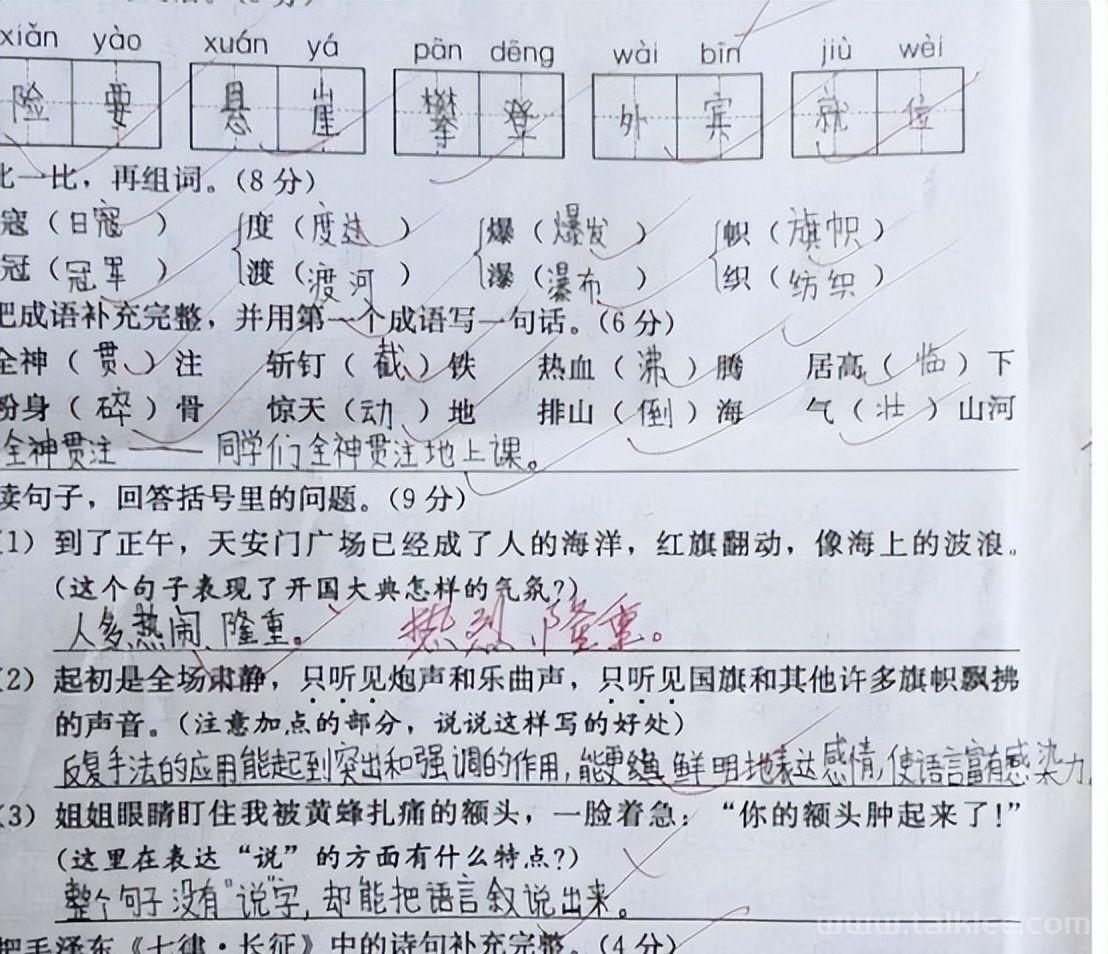 xiǎn yào xuán yá pān dēng wài bīn jiù wèi
险 要 悬 崖 攀 登 外 宾 就 位
比一比，再组词。(8分)
寇（日寇） 度（度过） 爆（爆发） 帜（旗帜）
冠（冠军） 渡（渡河） 瀑（瀑布） 织（纺织）
把成语补充完整，并用第一个成语写一句话。(6分)
全神（贯）注 斩钉（截）铁 热血（沸）腾 居高（临）下
粉身（碎）骨 惊天（动）地 排山（倒）海 气（壮）山河
全神贯注——同学们全神贯注地上课。
读句子，回答括号里的问题。(9分)
(1) 到了正午，天安门广场已经成了人的海洋，红旗翻动，像海上的波浪。
(这个句子表现了开国大典怎样的气氛?)
人多热闹、隆重。 热烈、隆重。
(2) 起初是全场肃静，只听见炮声和乐曲声，只听见国旗和其他许多旗帜飘拂
的声音。(注意加点的部分，说说这样写的好处)
反复手法的应用能起到突出和强调的作用，能更鲜明地表达感情，使语言富有感染力
(3) 姐姐眼睛盯住我被黄蜂扎痛的额头，一脸着急：“你的额头肿起来了!”
(这里在表达“说”的方面有什么特点?)
整个句子没有“说”字，却能把语言叙说出来。
把毛泽东《七律·长征》中的诗句补充完整。(4分)
www.talklee.com